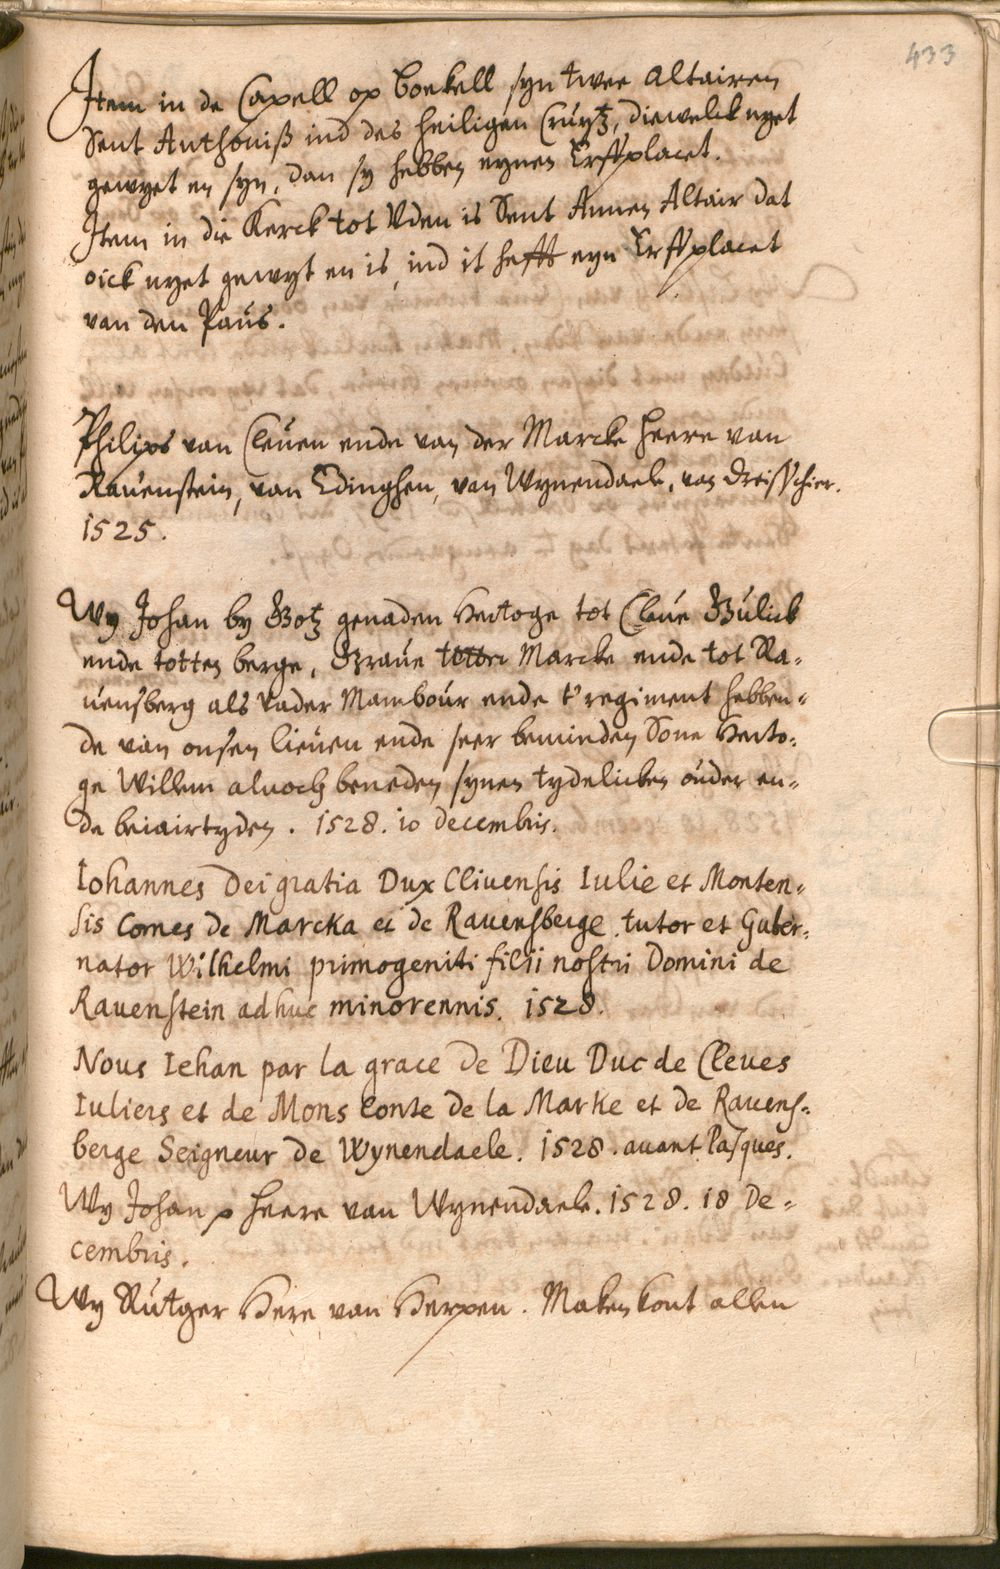 433
Item in de Capell op Boekell syn twee Altairen
Sent Anthoniß ind des heiligen Cruytz, diewelck nyet
gewyet en syn, dan sy hebben eynen Erffplacet.
Item in die Kerck tot Uden is Sent Annen Altair dat
oick nyet gewyt en is, ind it hefft eyn Erffplacet
van den Paus.
Philips van Cleuen ende van der Marcke Heere van
Rauenstein, van Edinghen, van Wynendaele, van Dreisschier.
1525.
Wy Johan by Gotz genaden Hertoge tot Cleue Gulick
ende totten berge, Graue Marcke ende tot Ra-
uensberg als Vader Mambour ende t'regiment hebben-
de van onsen lieuen ende seer beminden Sone Herto-
ge Willem alnoch beneden synen tydelicken ouder en-
de beiairtyden. 1528. 10 decembris.
Iohannes Dei gratia Dux Cliuensis Iulie et Monten-
sis Comes de Marcka et de Rauensberge tutor et Guber-
nator Wilhelmi primogeniti filii nostri Domini de
Rauenstein adhuc minorennis. 1528.
Nous Iehan par la grace de Dieu Duc de Cleues
Iuliers et de Mons Conte de la Marke et de Rauens-
berge Seigneur de Wynendaele. 1528. auant Pasques.
Wy Johan Heere van Wynendaele. 1528. 18 De-
cembris.
Wy Rutger Here van Herpen. Maken kont allen